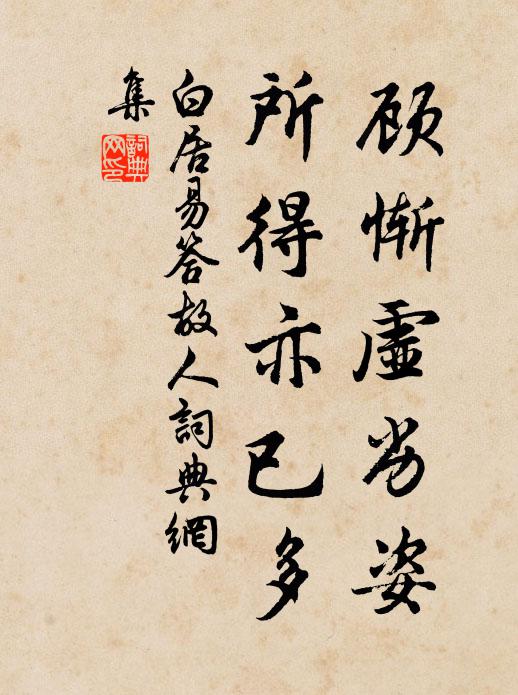 顾惭虚劣姿
所得亦已多
白居易答故人詞典網
集
詞典
网印